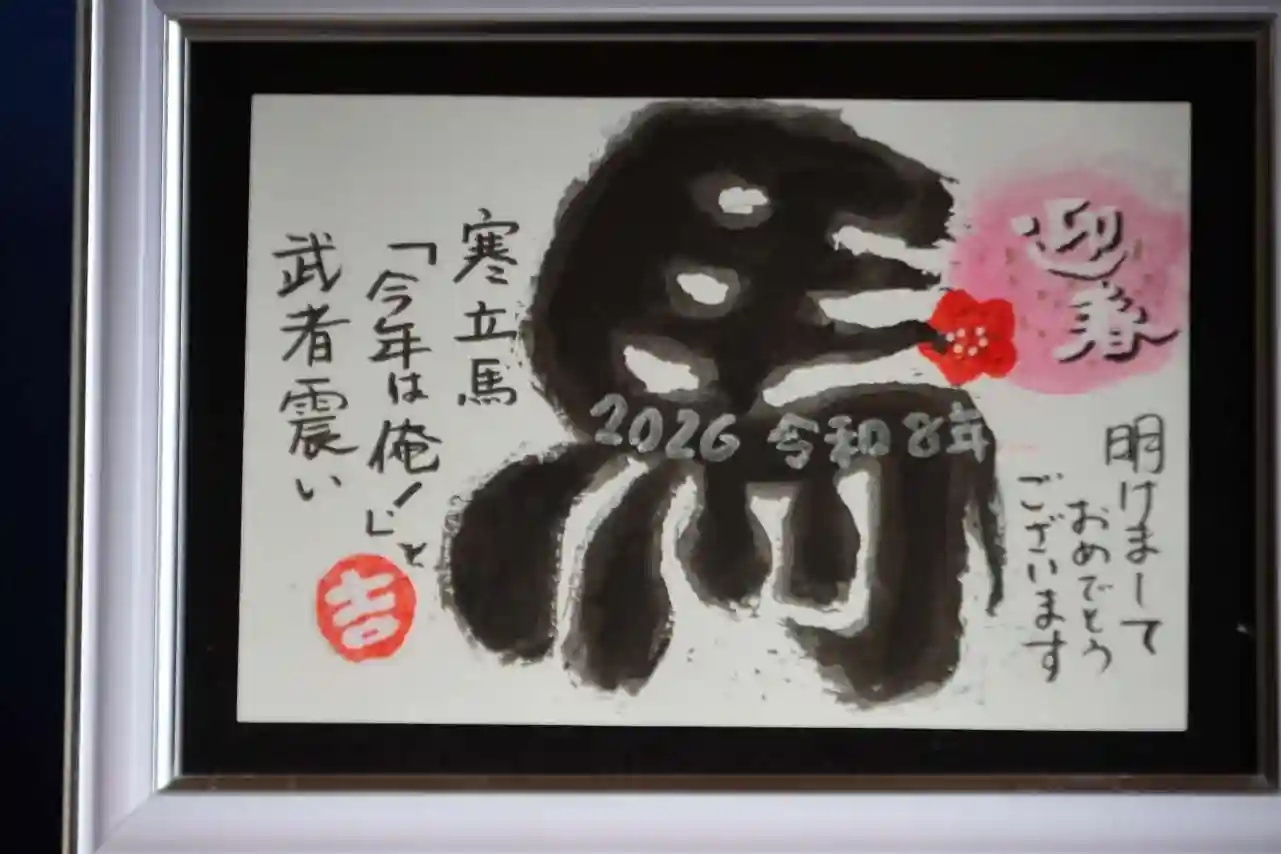 迎春
明けまして
おめでとう
ございます
2026 令和8年
寒立馬
「今年は俺!」と
武者震い
吉